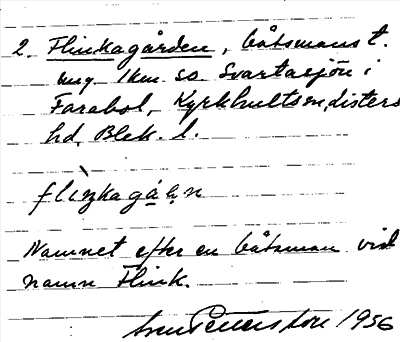 2. Flinkagården, båtsmanst.
ung. 1km. so. Svartasjön i
Farabol, Kyrkhults sn, Listers
hd, Blek. l.
flìnkagåɳ
Namnet efter en båtsman vid
namn Flink.
Sven Petersson 1956